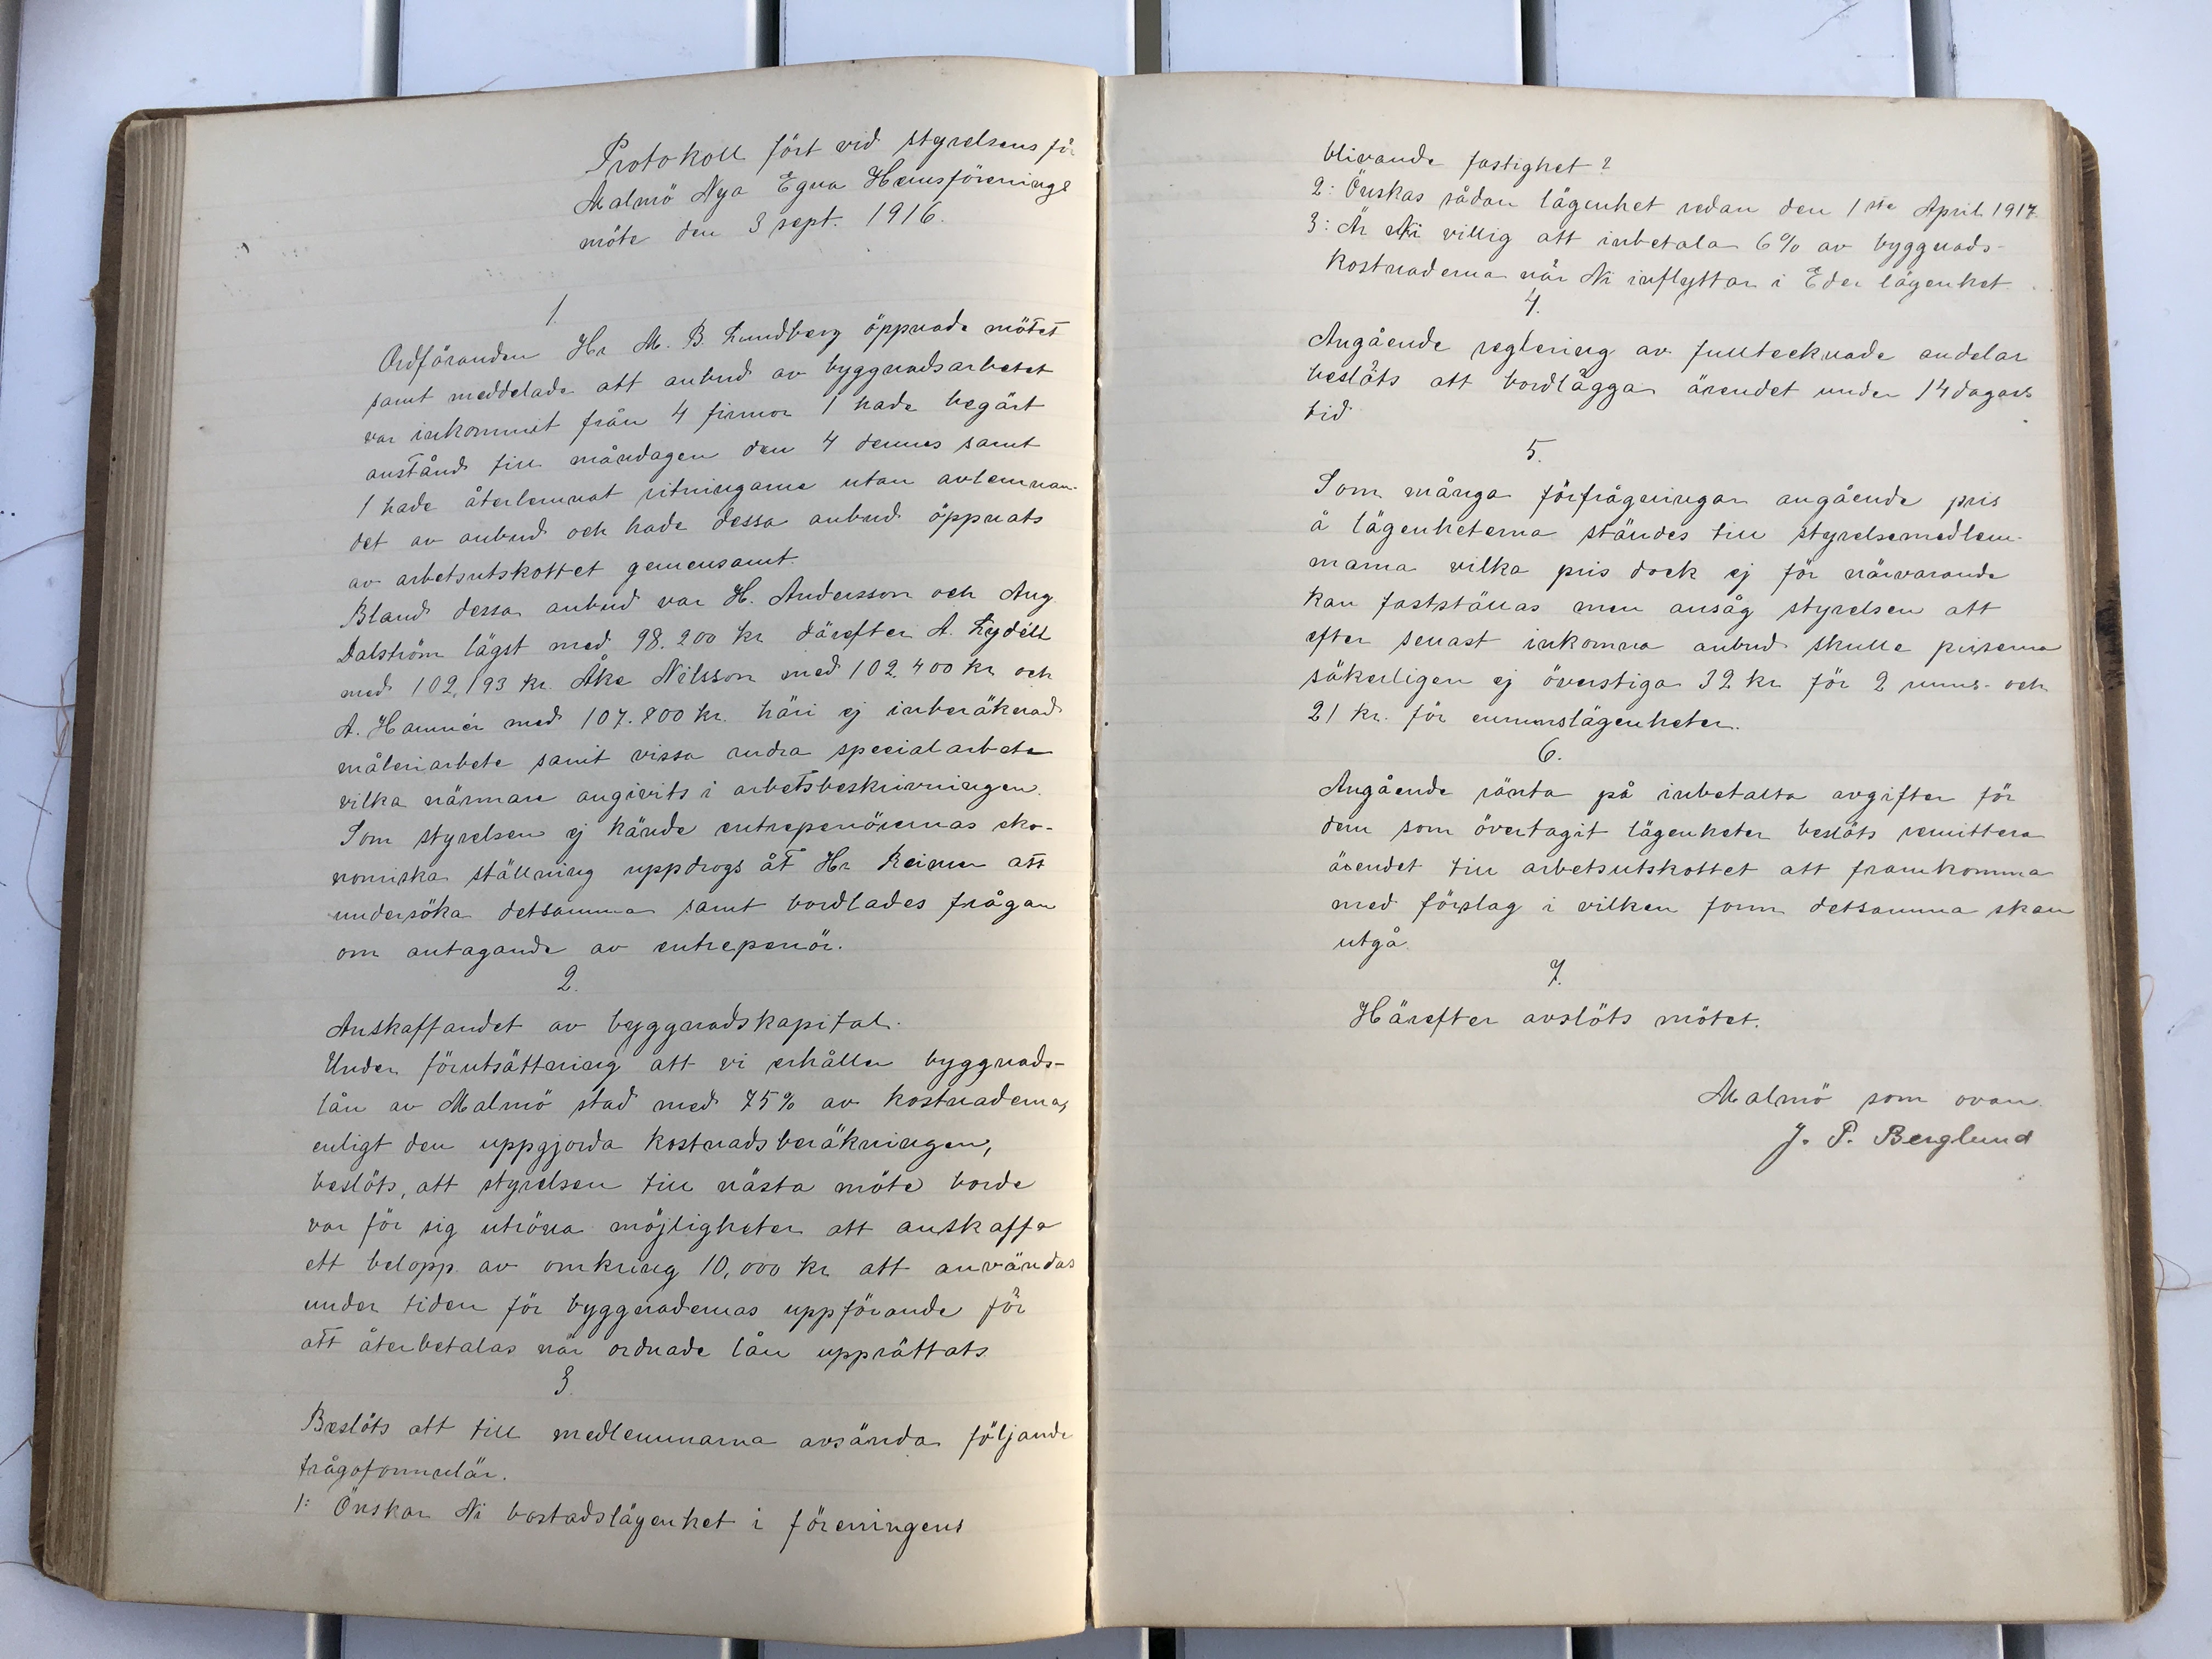 Protokoll fört vid styrelsens för
Malmö Nya Egna Hemsförenings
möte den 3 sept. 1916.
1.
Ordföranden Hr M. B. Lundberg öppnade mötet
samt meddelade att anbud av byggnadsarbetet
var inkommit från 4 firmor 1 hade begärt
anstånd till måndagen den 4 dennes samt
1 hade återlemnat ritningarne utan avlemnan-
det av anbud och hade dessa anbud öppnats
av arbetsutskottet gemensamt.
Bland dessa anbud var H. Andersson och Aug.
Dalström lägst med 98.200 kr därefter A. Rydéll
med 102,193 kr. Åke Nilsson med 102.400 kr och
A. Hamnér med 107.800 kr. häri ej inberäknad
måleriarbete samt vissa andra specialarbete
vilka närmare angivits i arbetsbeskrivningen.
Som styrelsen ej kände entrepenörernas eko-
nomiska ställning uppdrogs åt Hr Reimer att
undersöka detsamma samt bordlades frågan
om antagande av entrepenör.
2.
Anskaffandet av byggnadskapital.
Under förutsättning att vi erhålla byggnads-
lån av Malmö stad med 75% av kostnaderna,
enligt den uppgjorda kostnadsberäkningen,
beslöts, att styrelsen till nästa möte borde
var för sig utröna möjligheter att anskaffa
ett belopp av omkring 10,000 kr att användas
under tiden för byggnadernas uppförande för
att återbetalas när ordnade lån upprättats
3.
Beslöts att till medlemmarna avsända följande
frågoformulär.
1: Önskar Ni bostadslägenhet i föreningens
blivande fastighet?
2: Önskas sådan lägenhet redan den 1sta April 1917.
3: Är Ni villig att inbetala 6% av byggnads-
kostnaderna när Ni inflyttar i Eder lägenhet.
4.
Angående reglering av fulltecknade andelar
beslöts att bordlägga ärendet under 14 dagars
tid
5.
Som många förfrågningar angående pris
å lägenheterna ständes till styrelsemedlem-
marna vilka pris dock ej för närvarande
kan fastställas men ansåg styrelsen att
efter senast inkomna anbud skulle priserna
säkerligen ej överstiga 32 kr för 2 rums- och
21 kr. för enrumslägenheter.
6.
Angående ränta på inbetalta avgifter för
dem som övertagit lägenheter beslöts remittera
ärendet till arbetsutskottet att framkomma
med förslag i vilken form detsamma skall
utgå.
7.
Härefter avslöts mötet.
Malmö som ovan.
J. P. Berglund